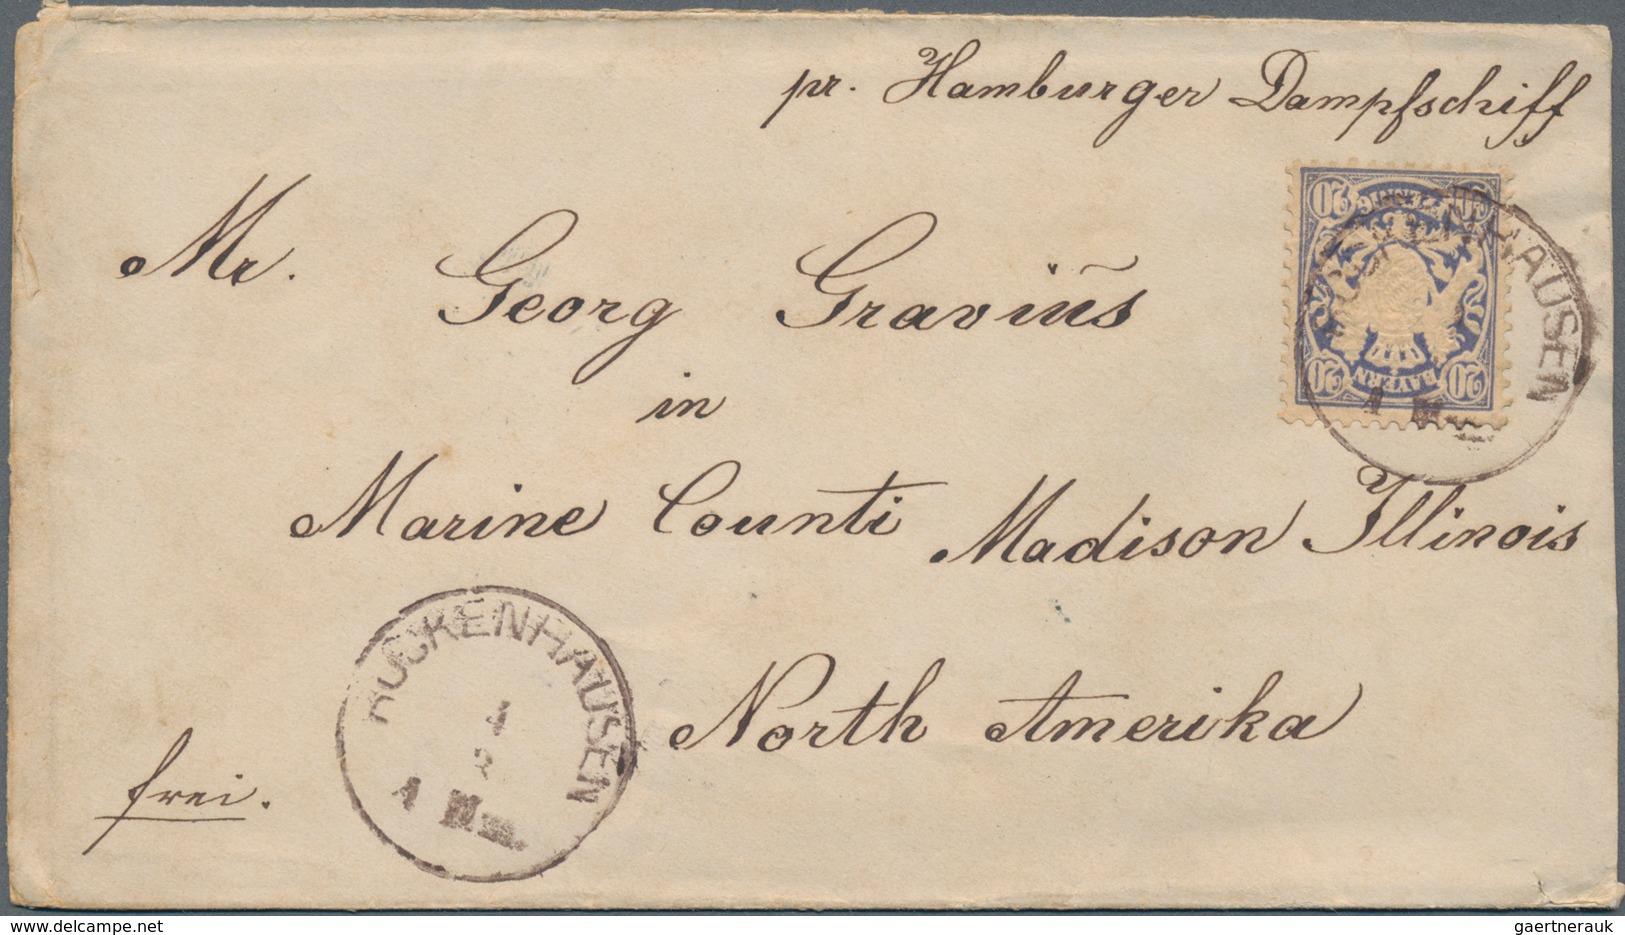 pr. Hamburger Dampfschiff
20 PFENNIG 20
BAYERN
20 20
HAUSEN
A
Mr. Georg Graviŭs
in
Marine Counti Madison Illinois
North Amerika
frei.
RUCKENHAUSEN
1
2
A
delcampe.net
gaertnerauk